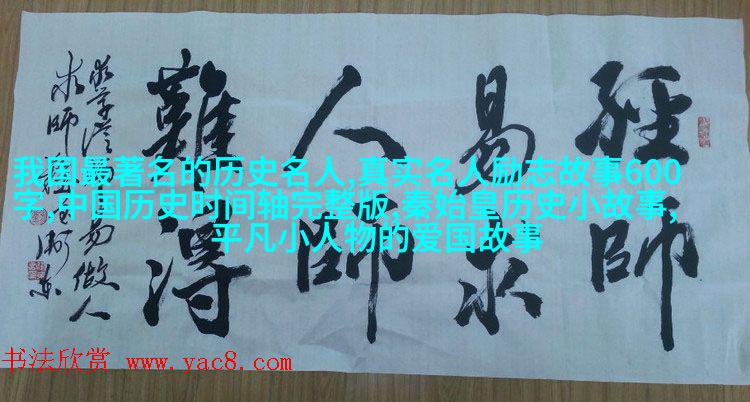 經師
易求
人師
難得
我国最著名的历史名人,真实名人励志故事600
字,中国历史时间轴完整版,秦始皇历史小故事,
平凡小人物的爱国故事
书法欣赏 www.yac8.com